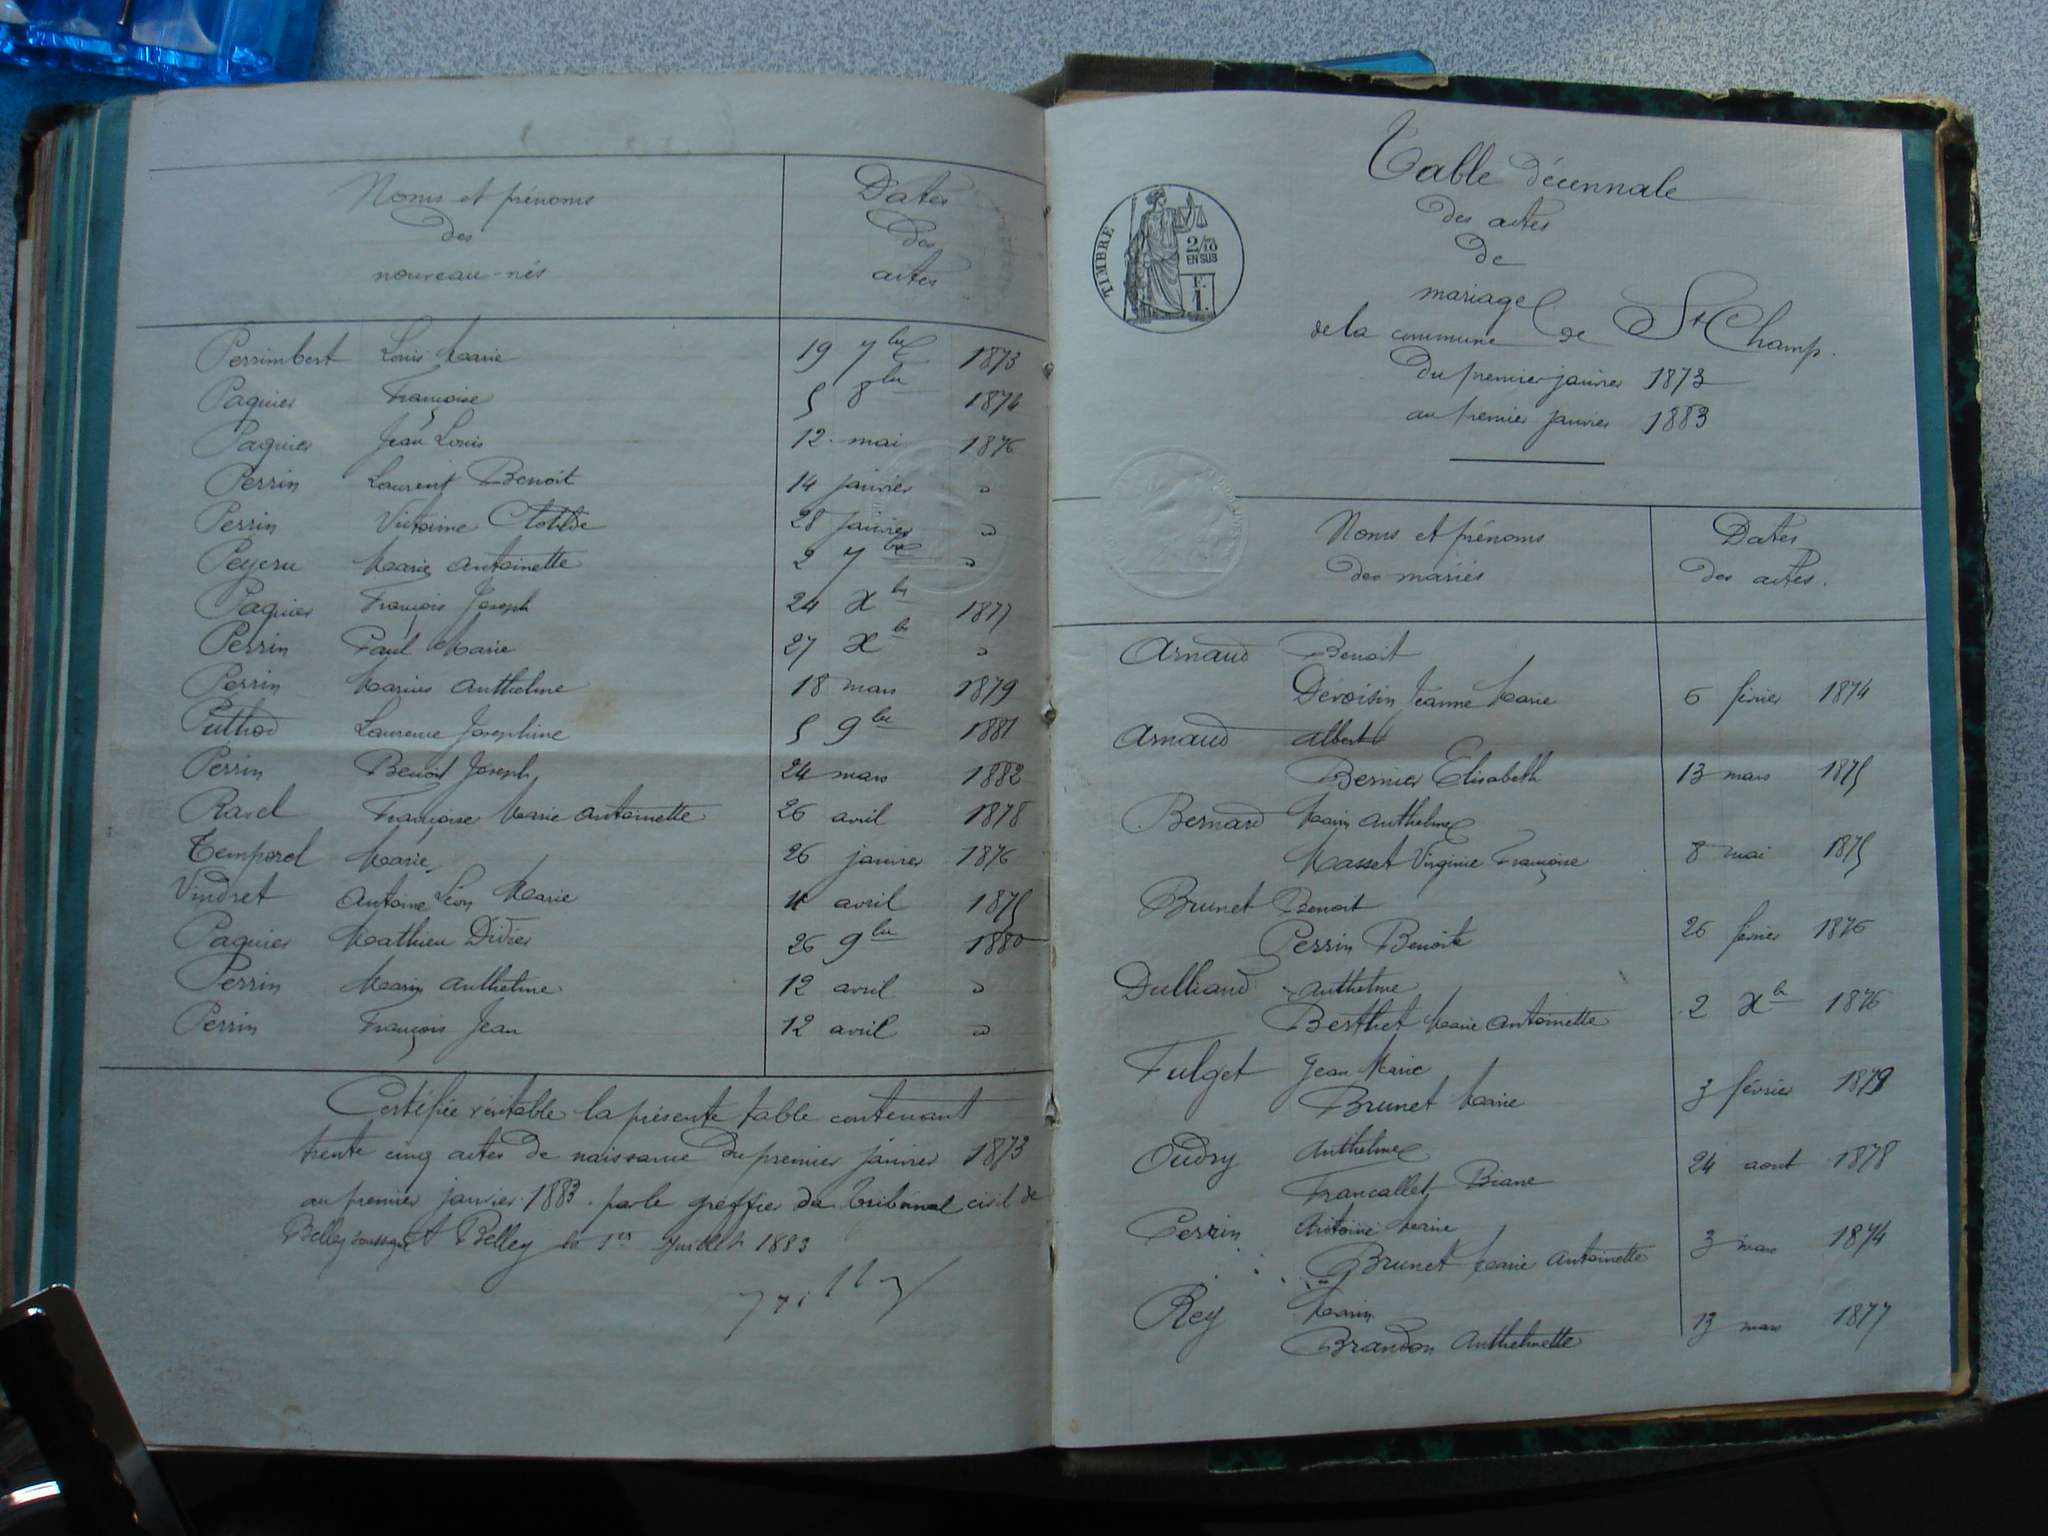 Noms et prénoms
des
nouveau-nés
Dates
des
actes
Perrimbert Louis Marie 19 7bre 1873
Paquier Françoise 5 8bre 1874
Paquier Jean Louis 12 mai 1876
Perrin Laurent Benoit 14 janvier "
Perrin Victorine Clotilde 28 janvier "
Peyeru Marie Antoinette 2 7bre "
Paquier François Joseph 24 Xbre 1877
Perrin Paul Marie 27 Xbre "
Perrin Marius Anthelme 18 mars 1879
Puthod Laurence Josephine 5 9bre 1881
Perrin Benoit Joseph 24 mars 1882
Ravel Françoise Marie Antoinette 26 avril 1878
Temporel Marie 26 janvier 1876
Vindret Antoine Léon Marie 4 avril 1875
Paquier Mathieu Didier 26 9bre 1880
Perrin Marin Anthelme 12 avril "
Perrin François Jean 12 avril "
Certifiée véritable la présente table contenant
trente cinq actes de naissance du premier janvier 1873
au premier janvier 1883 par le greffier du Tribunal civil de
Belley soussigné Belley le 1er Juillet 1883
TIMBRE
2/10
EN SUS
1 F.
Table décennale
des actes
de
mariage
de la commune de St Champ.
Du premier janvier 1873
au premier janvier 1883
Noms et prénoms
des mariés
Dates
des actes.
Arnaud Benoit
Devoisin Jeanne Marie 6 février 1874
Arnaud Albert
Bernier Elisabeth 13 mars 1875
Bernard Marin Anthelme
Masset Virginie Françoise 8 mai 1875
Brunet Benoit
Perrin Benoite 26 février 1876
Dulliand Anthelme
Berthet Marie Antoinette 2 Xbre 1876
Fulget Jean Marie
Brunet Marie 3 février 1879
Oudry Anthelme
Francallet Diane 24 aout 1878
Perrin Antoine Marie
Brunet Marie Antoinette 3 mars 1874
Rey Marin
Brandon Anthelmette 13 mars 1877